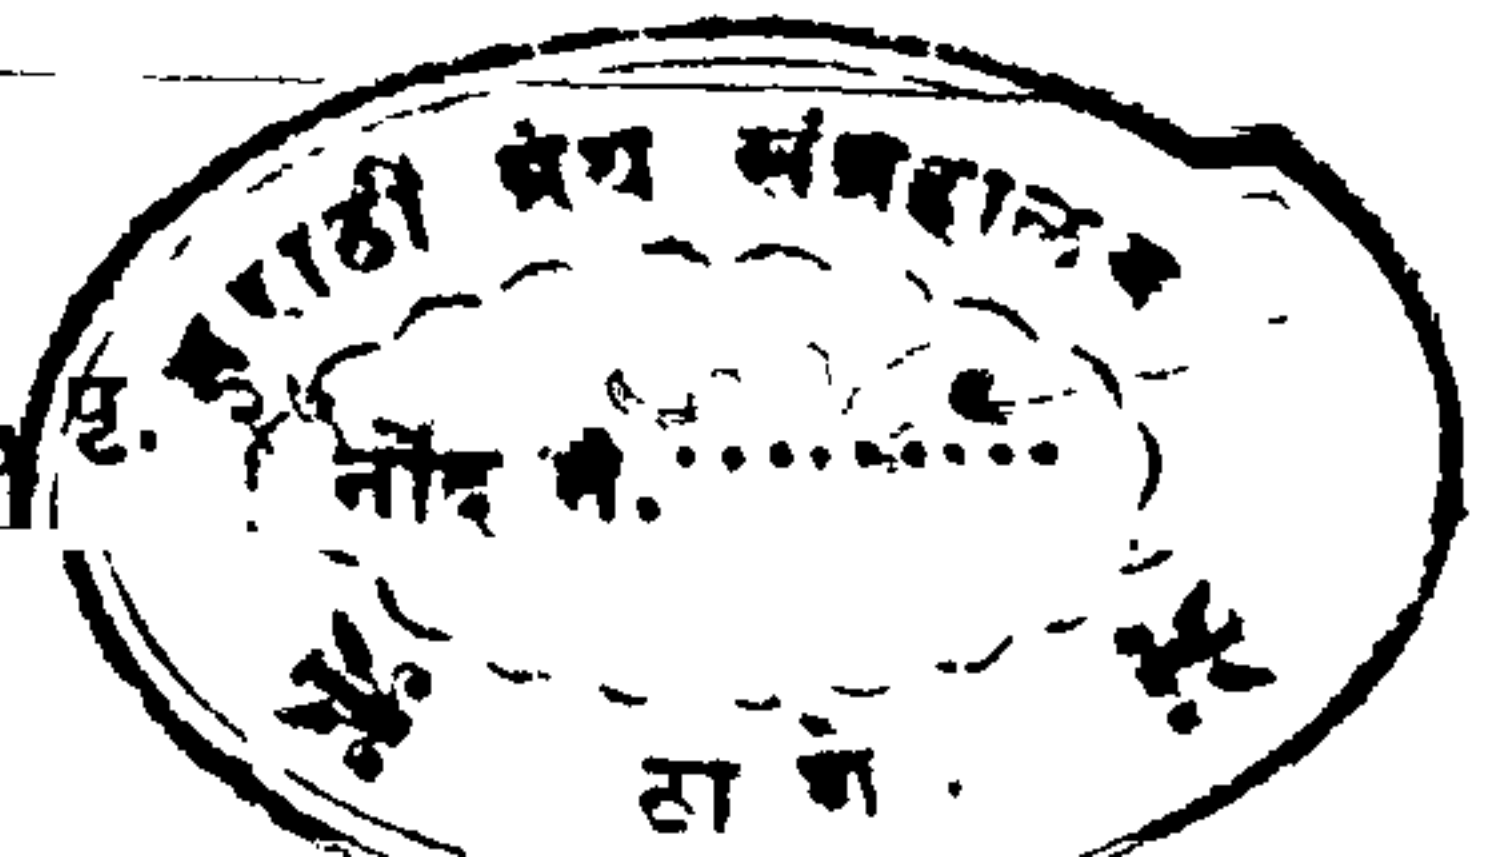 मराठी ग्रंथ संग्रहालय
पृ.
नोंद नं. ..........
ठाणें.